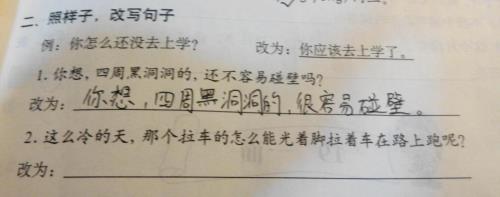 二、照样子，改写句子
例：你怎么还没去上学？ 改为：你应该去上学了。
1. 你想，四周黑洞洞的，还不容易碰壁吗？
改为：你想，四周黑洞洞的，很容易碰壁。
2. 这么冷的天，那个拉车的怎么能光着脚拉着车在路上跑呢？
改为：